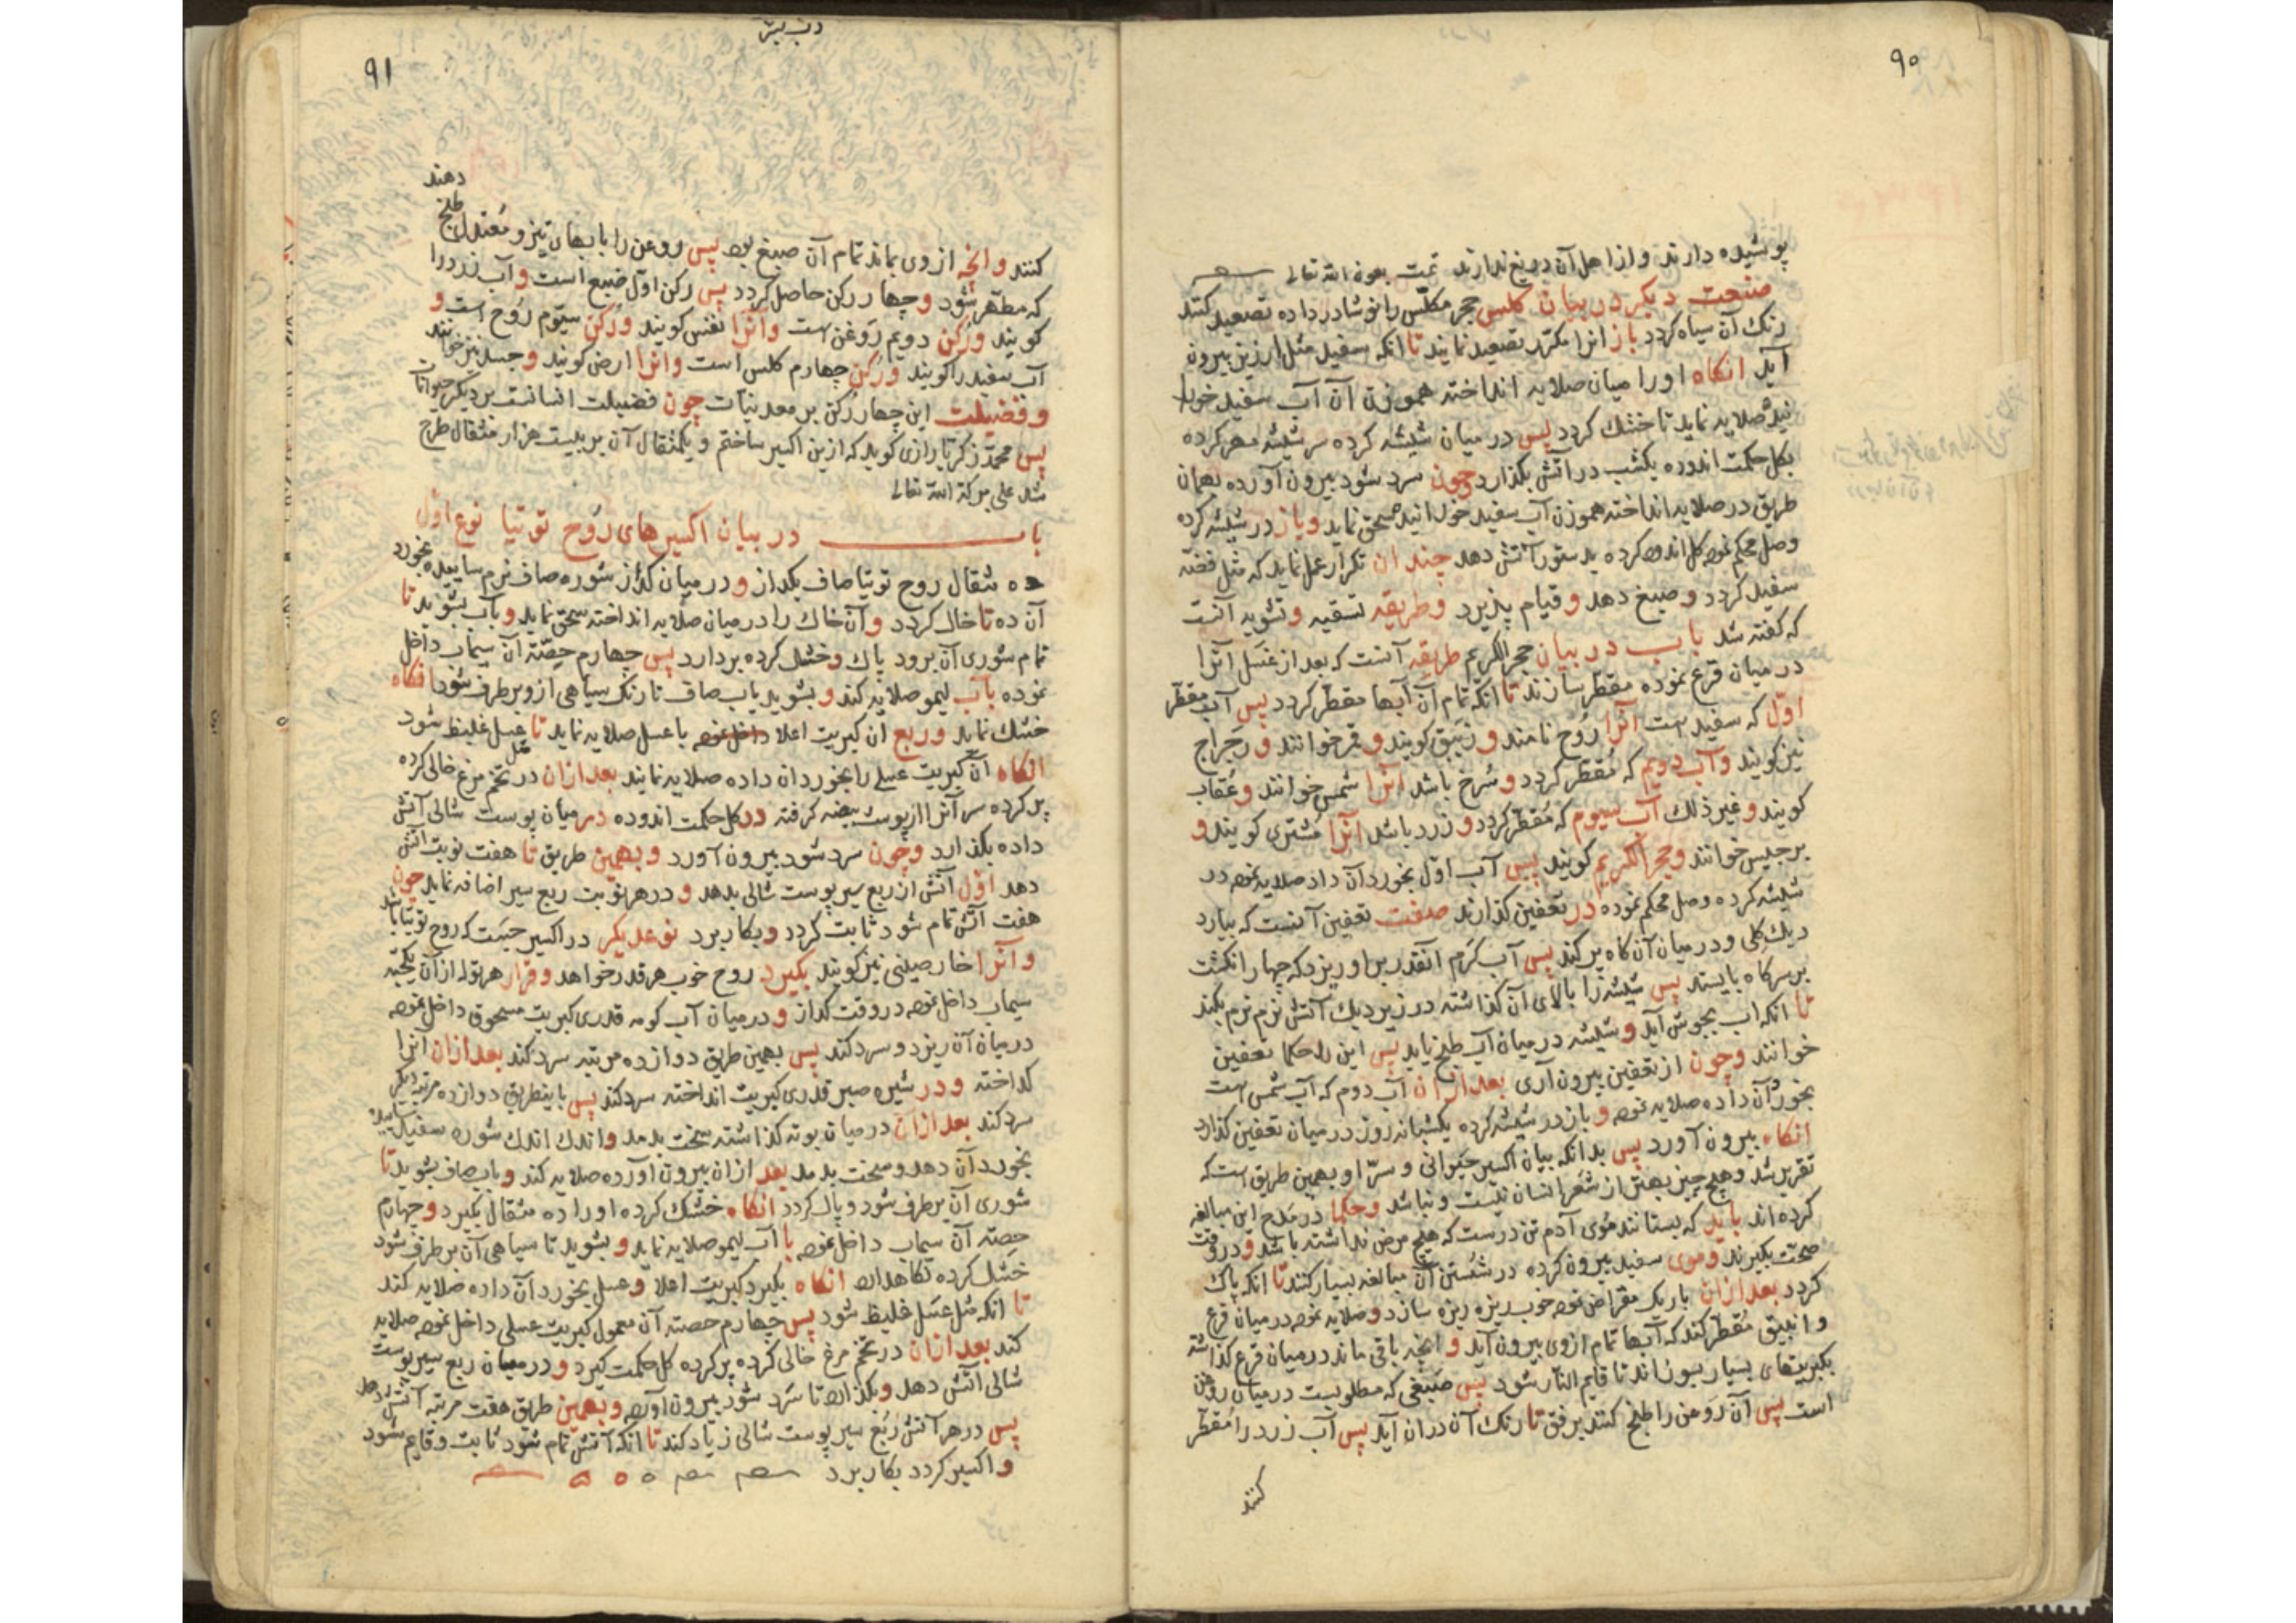 ۹۰
پوشیده دارند و از اهل آن دریغ ندارند تمت بعون الله تعالی
صنعت دیکر در بیان کلس حجر مکلس را نوشادر داده تصعید کنند
رنك آن سیاه کردد باز انرا مکرر تصعید نمایند تا انکه سفید مثل ارزیز بیرون
آید انکاه او را میان صلایه انداخته هموزن آن آب سفید خورا
نیده صلایه نماید تا خشك کردد پس در میان شیشه کرده سر شیشه مهر کرده
بکل حکمت اندوده یکشب در آتش بکذارد و چون سرد شود بیرون آورده بهمان
طریق در صلایه انداخته هموزن آب سفید خورانید سحق نماید و باز در شیشه کرده
وصل محکم نموده کل اندود کرده بدستور آتش دهد چندان تکرار عمل نماید که مثل فضّه
سفید کردد و صبغ دهد و قیام پذیرد و طریقه تسقیه و تشویه آنست
که کفته شد باب در بیان حجر الکریم طریقه آنست که بعد از غسل آنرا
در میان قرع نموده مقطر سازند تا انکه تمام آن آبها مقطّر کردد پس آب مقطر
اوّل که سفید است آنرا رُوح نامند و زیبق کویند و قمر خوانند و رجراج
نیز کویند و آب دویم که مُقطّر کردد و سُرخ باشد انرا شمس خوانند و عُقاب
کویند و غیر ذلك آب سیوم که مُقطّر کردد و زرد باشد انرا مشتری کویند و
برجیس خوانند و حجر الکریم کویند پس آب اوّل بخورد آن داد صلایه نموده در
شیشه کرده وصل محکم نموده در تعفین کذارند صفت تعفین آنست که بیارد
دیك کلی و در میان آن کاه پر کند پس آب کرم آنقدر بر او ریزد که چهار انکشت
بر سر کاه بایستد پس شیشه را بالای آن کذاشته در زیر دیك آتش نرم نرم بکند
تا انکه اب بجوش آید و شیشه در میان آب طبخ یابد پس این را حکما تعفین
خوانند و چون از تعفین بیرون آری بعد از ان آب دوم که آب شمس است
بخورد آن داده صلایه نموده و باز در شیشه کرده یکشبانه روز در میان تعفین کذارد
انکاه بیرون آورد پس بدانکه بیان اکسیر حیوانی و سرّ او بهمین طریق است که
تقریر شد و هیچ چیز بهتر از شعر انسان نیست و نباشد و حکما در مدح این مبالغه
کرده اند باید که بستانند موی آدم تن درست که هیچ مرض نداشته باشد و در وقت
صحت بکیرند و موی سفید بیرون کرده در شستن آن مبالغه بسیار کنند تا انکه پاك
کردد بعد از ان باریك مقراض نموده خوب ریزه ریزه سازد و صلایه نموده در میان قرع
و انبیق مُقطّر کند که آبها تمام از وی بیرون آید و انچه باقی ماند در میان قرع کذاشته
بکبریتهای بسیار بسوزاند تا قایم النار شود پس صبغی که مطلوبست در میان روغن
است پس آن روغن را طبخ کنند برفق تا رنك آن در ان آید پس آب زرد را مُقطّر
کنند
۹۱
دهند
کنند و انچه از وی بماند تمام آن صبغ بود پس روغن را با آبهای تیز و مُعتدل طبخ
که مطهّر شود و چهار رکن حاصل کردد پس رکن اوّل صبغ است و آب زرد را
کویند و رکن دویم روغن است و آنرا نفس کویند و رکن سیّوم رُوح است و
آب سفید را کویند و رکن چهارم کلس است و انرا ارض کویند و جسد نیز خوانند
و فضیلت این چهار رُکن بر معدنیّات چون فضیلت انسانست بر دیکر حیوانات
پس محمّد زکریّا رازی کوید که ازین اکسیر ساختم و یکمثقال آن بر بیست هزار مثقال طرح
شد علی برکة الله تعالی
باب در بیان اکسیرهای رُوح توتیا نوع اوّل
ده مثقال روح توتیا صاف بکداز و در میان کداز شوره صاف نرم ساییده بخورد
آن ده تا خاك کردد و آن خاك را در میان صلایه انداخته سحق نماید و بآب بشوید تا
تمام شوری آن برود پاك و خشك کرده بردارد پس چهارم حصّه آن سیماب داخل
نموده بآب لیمو صلایه کند و بشوید بآب صاف تا رنك سیاهی ازو بر طرف شود انکاه
خشك نماید و ربع ان کبریت اعلا داخل نموده با عسل صلایه نماید تا عسل غلیظ شود
انکاه آن کبریت عسلی را بخورد ان داده صلایه نمایند بعد از ان در تخم مرغ خالی کرده
پر کرده سر آنرا از پوست بیضه کرفته در کل حکمت اندوده در میان پوست شالی آتش
داده بکذارد و چون سرد شود بیرون آورد و بهمین طریق تا هفت نوبت آتش
دهد اوّل آتش از ربع سیر پوست شالی بدهد و در هر نوبت ربع سیر اضافه نماید چون
هفت آتش تمام شود ثابت کردد و بکار برد نوع دیکر در اکسیر جست که روح توتیا باشد
و آنرا خارصینی نیز کویند بکیرد روح خوب هر قدر خواهد و قرار هر توله از آن یکحبّه
سیماب داخل نموده در وقت کداز و در میان آب کومه قدری کبریت مسحوق داخل نموده
در میان آن ریزد و سرد کند پس بهمین طریق دوازده مرتبه سرد کند بعد از ان آنرا
کداخته و در شیره صبر قدری کبریت انداخته سرد کند پس باینطریق دوازده مرتبه دیکر
سرد کند بعد از ان در میان بوته کذاشته سخت بدمد و اندك اندك شوره سفید ساییده
بخورد آن دهد و سخت بدمد بعد از ان بیرون آورده صلایه کند و بآب صاف بشوید تا
شوری آن بر طرف شود و پاك کردد انکاه خشك کرده او را ده مثقال بکیرد و چهارم
حصّه آن سیماب داخل نموده با آب لیمو صلایه نماید و بشوید تا سیاهی آن بر طرف شود
خشك کرده نکاهدارد انکاه بکیرد کبریت اعلا و عسل بخورد آن داده صلایه کند
تا انکه مثل عسل غلیظ شود پس چهارم حصّه آن معمول کبریت عسلی داخل نموده صلایه
کند بعد از ان در تخم مرغ خالی کرده پر کرده کل حکمت کیرد و در میان ربع سیر پوست
شالی آتش دهد و بکذارد تا سرد شود بیرون آورد و بهمین طریق هفت مرتبه آتش دهد
پس در هر آتش رُبع سیر پوست شالی زیاد کند تا انکه آتش تمام شود ثابت و قایم شود
و اکسیر کردد بکار برد